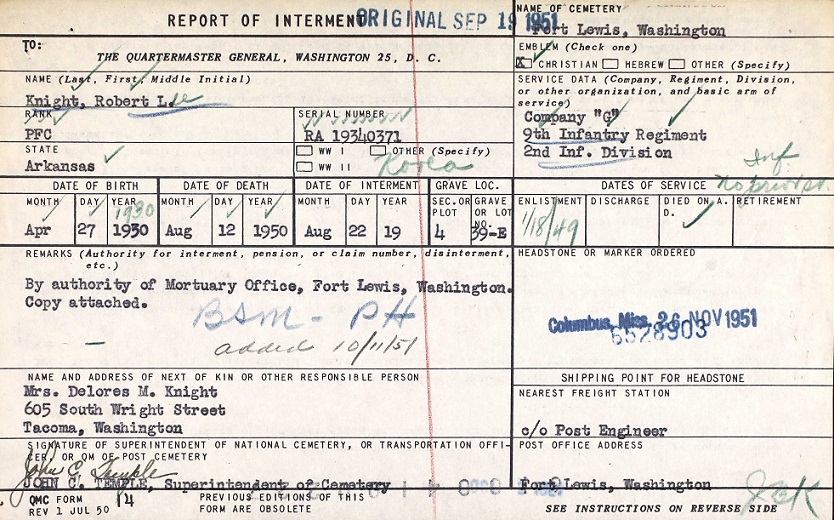 REPORT OF INTERMENT
ORIGINAL SEP 19 1951
NAME OF CEMETERY
Fort Lewis, Washington
TO:
THE QUARTERMASTER GENERAL, WASHINGTON 25, D. C.
EMBLEM (Check one)
X CHRISTIAN HEBREW OTHER (Specify)
NAME (Last, First, Middle Initial)
Knight, Robert Lee
SERVICE DATA (Company, Regiment, Division,
or other organization, and basic arm of
service)
Company "G"
9th Infantry Regiment
2nd Inf. Division
Inf
RANK
PFC
SERIAL NUMBER
RA 19340371
STATE
Arkansas
WW I OTHER (Specify)
WW II Korea
DATE OF BIRTH DATE OF DEATH DATE OF INTERMENT GRAVE LOC. DATES OF SERVICE
No prior sv.
MONTH DAY YEAR MONTH DAY YEAR MONTH DAY YEAR SEC. OR PLOT GRAVE OR LOT NO. ENLISTMENT DISCHARGE DIED ON A. D. RETIREMENT
1930
Apr 27 1930 Aug 12 1950 Aug 22 19 4 39-E 1/18/49
REMARKS (Authority for interment, pension, or claim number, disinterment,
etc.)
By authority of Mortuary Office, Fort Lewis, Washington.
Copy attached.
BSM - PH
added 10/11/51
HEADSTONE OR MARKER ORDERED
Columbus, Miss. 26 NOV 1951
6528903
NAME AND ADDRESS OF NEXT OF KIN OR OTHER RESPONSIBLE PERSON
Mrs. Delores M. Knight
605 South Wright Street
Tacoma, Washington
SHIPPING POINT FOR HEADSTONE
NEAREST FREIGHT STATION
c/o Post Engineer
SIGNATURE OF SUPERINTENDENT OF NATIONAL CEMETERY, OR TRANSPORTATION OFFI-
CER, OR QM OF POST CEMETERY
John C. Temple
JOHN C. TEMPLE, Superintendent of Cemetery
POST OFFICE ADDRESS
Fort Lewis, Washington
QMC FORM 14
REV 1 JUL 50
PREVIOUS EDITIONS OF THIS
FORM ARE OBSOLETE
SEE INSTRUCTIONS ON REVERSE SIDE